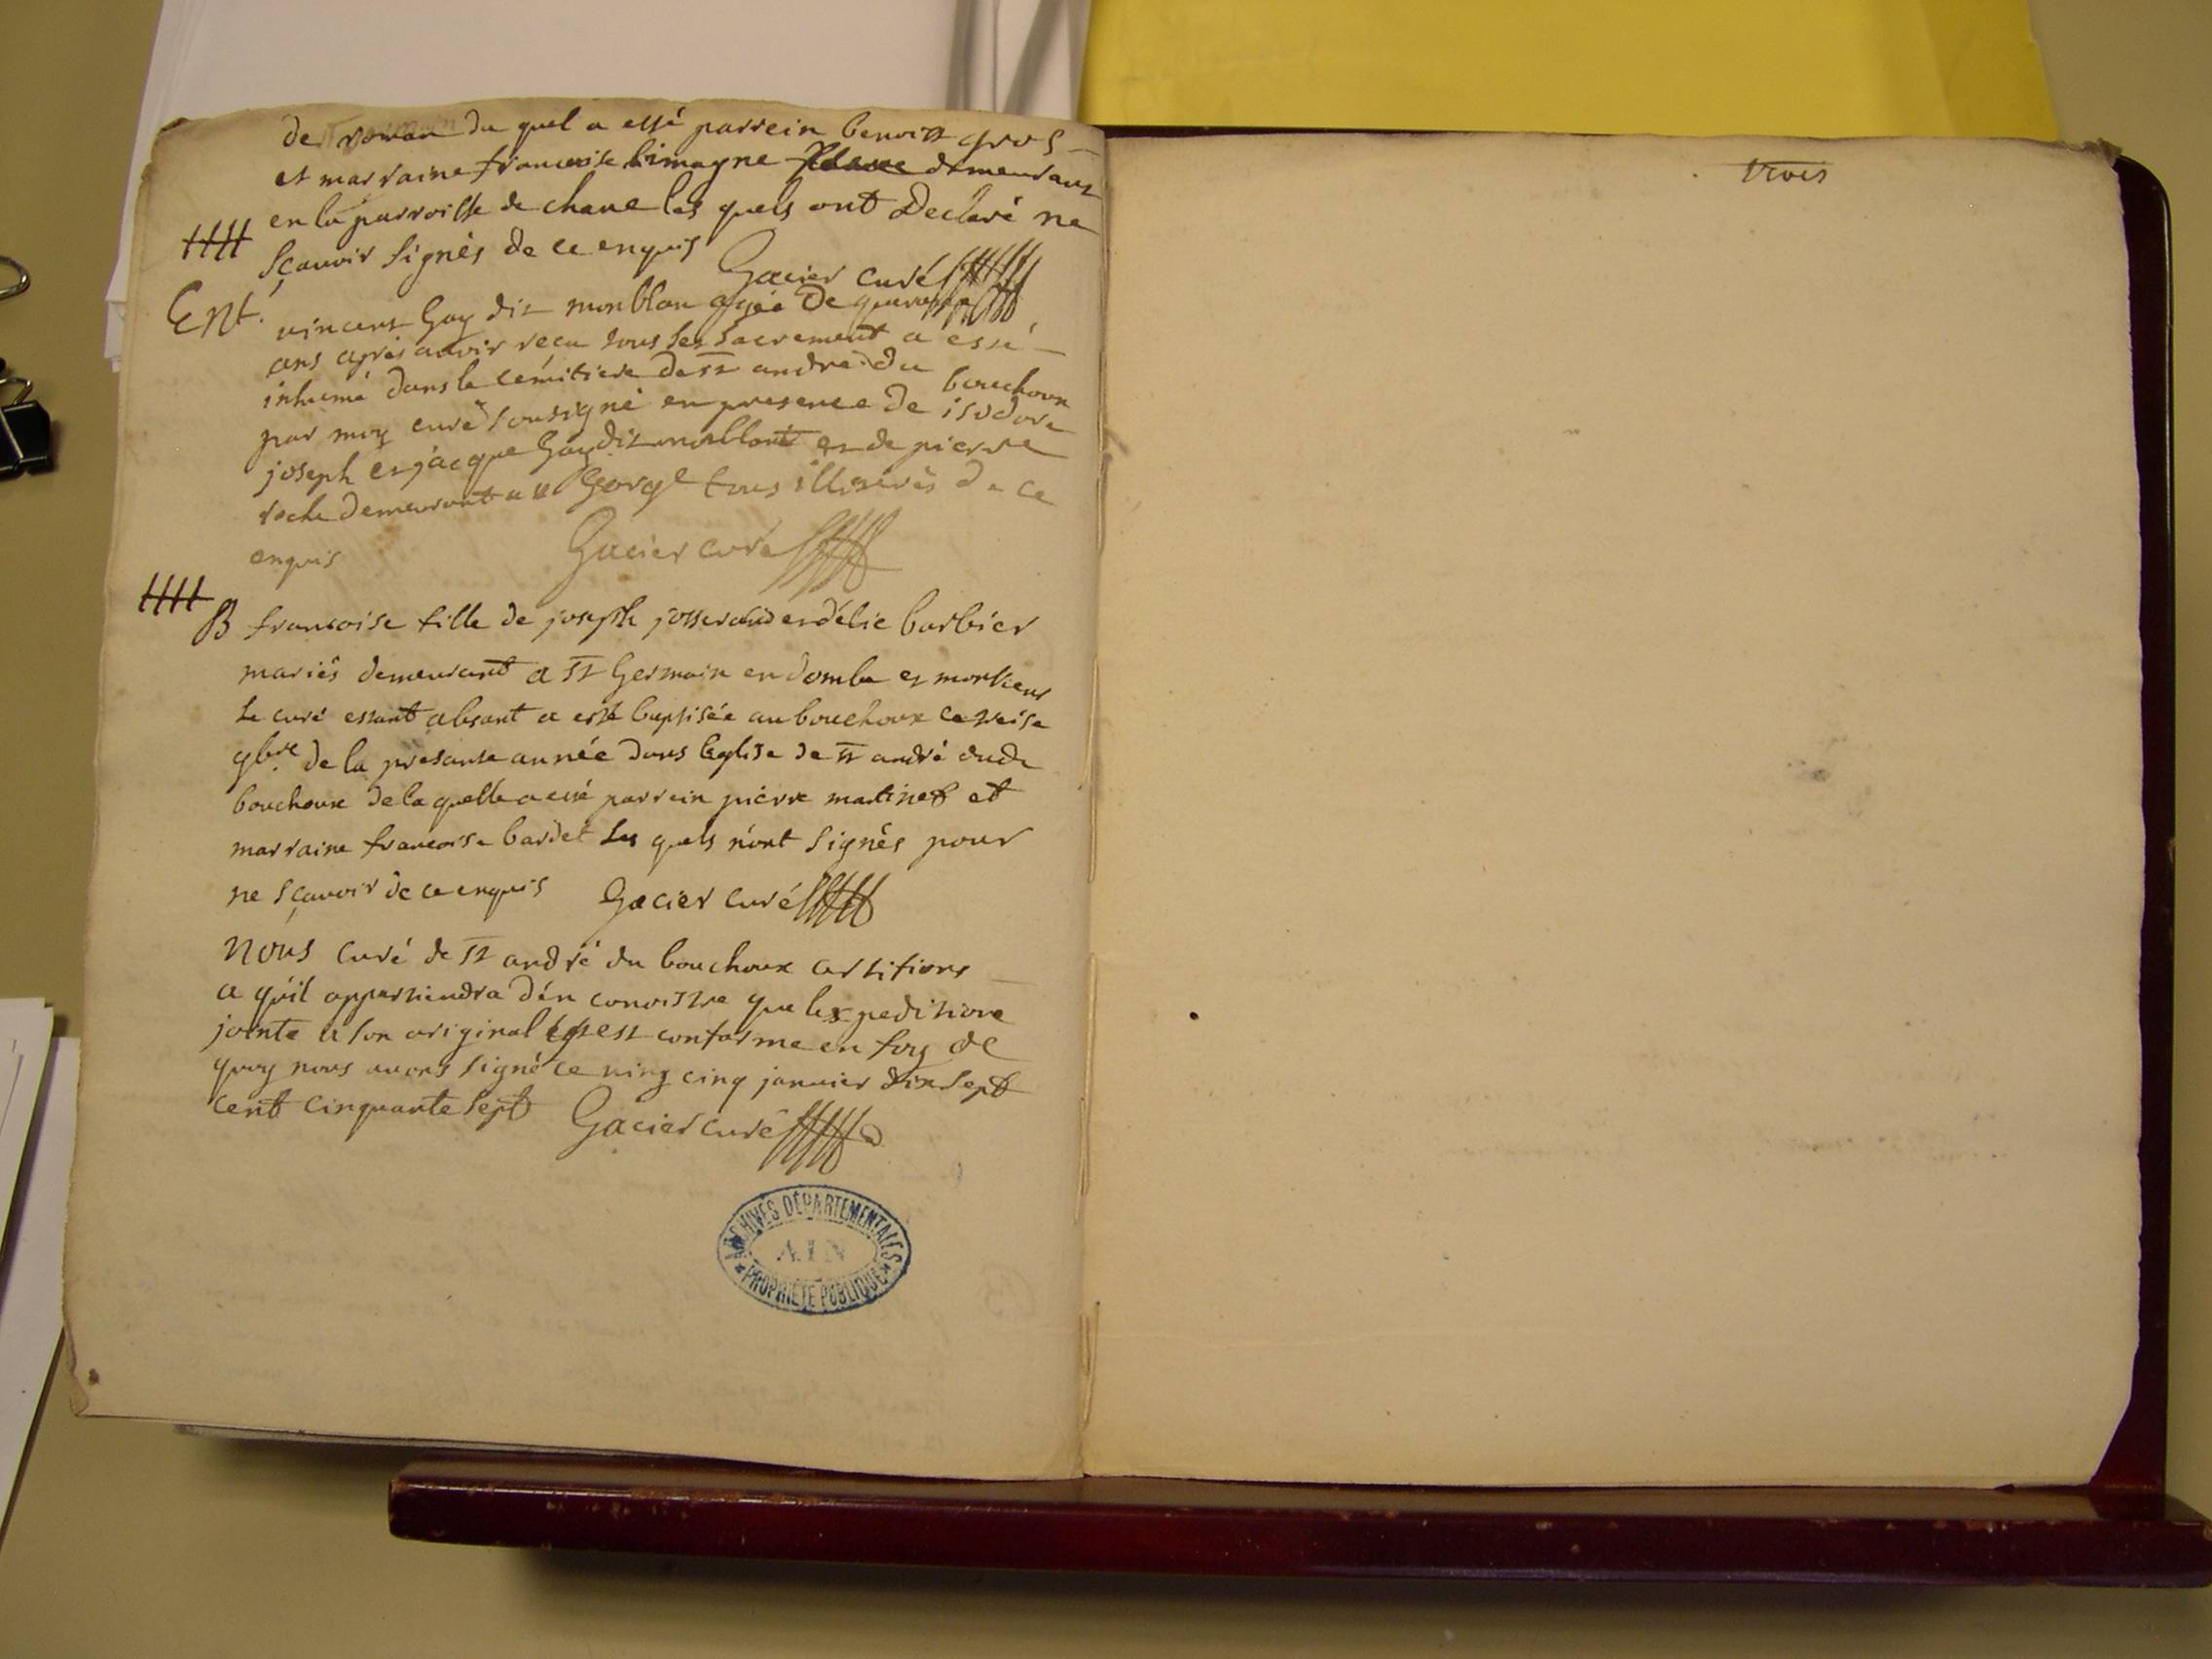 de roman du quel a esté parrein benoitt gros
et marraine francoise limagne demeurant
en la parroisse de chane les quels ont Declaré ne
sçavoir signés de ce enquis Gacier curé
Ent. vincent Gay dit monblan agée De quarante
ans apres avoir recu tous les sacrement a esté
inhumé dans le cémitiere de st andré du bouchoux
par moy curé sousigné en presence de isodore
joseph et jacque Gay dit et de pierre
roche demeurant a st George tous illiterés de ce
enquis Gacier curé
B francoise fille de joseph josserand et délie barbier
mariés demeurant a st Germain en domba et monsieur
le curé estant absant a esté baptisée au bouchoux ce treise
9bre de la presante année dans leglise de st andré dudi
bouchoux de la quelle a esté parrein pierre martinet et
marraine francoise bardet les quels n'ont signés pour
ne sçavoir de ce enquis Gacier curé
Nous curé de st andré du bouchoux certifions
a qu'il appartiendra d'en conoistre que lexpeditione
jointe a son original est conforme en foy de
quoy nous avons signé ce vingt cinq janvier dix sept
cent cinquante sept Gacier curé
ARCHIVES DÉPARTEMENTALES
AIN
PROPRIÉTÉ PUBLIQUE
trois